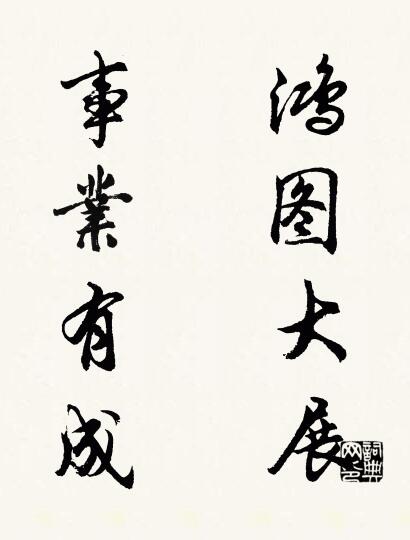 鸿图大展
事業有成
詞典
网